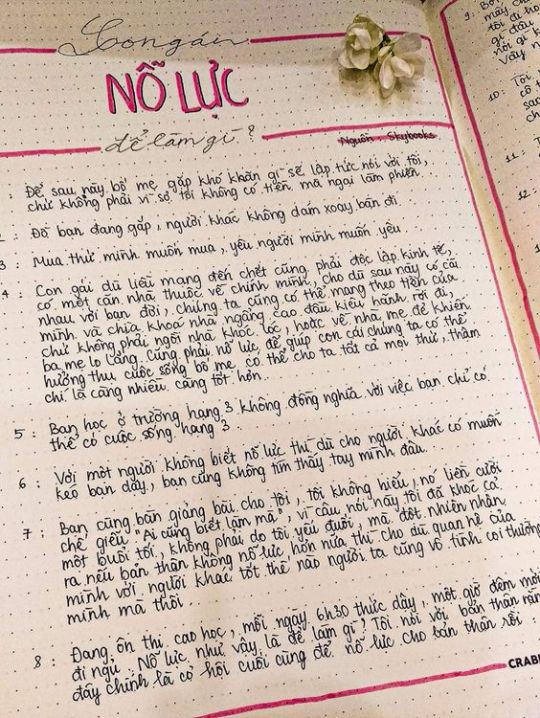 Con gái
NỖ LỰC
để làm gì?
Nguồn: Skybooks
: Để sau này bố mẹ gặp khó khăn gì sẽ lập tức nói với tôi,
chứ không phải vì sợ tôi không có tiền mà ngại làm phiền.
: Đồ bạn đang gắp, người khác không dám xoay bàn đi
3 : Mua thứ mình muốn mua, yêu người mình muốn yêu
4 : Con gái dù liều mạng đến chết cũng phải độc lập kinh tế,
có một căn nhà thuộc về chính mình, cho dù sau này có cãi
nhau với bạn đời, chúng ta cũng có thể mang theo tiền của
mình và chìa khoá nhà ngẩng cao đầu kiêu hãnh rời đi,
chứ không phải ngồi nhà khóc lóc, hoặc về nhà mẹ để khiến
ba mẹ lo lắng. Cũng phải nỗ lực để giúp con cái chúng ta có thể
hưởng thụ cuộc sống bố mẹ có thể cho ta tất cả mọi thứ, thậm
chí là càng nhiều càng tốt hơn.
5 : Bạn học ở trường hạng 3 không đồng nghĩa với việc bạn chỉ có
thể có cuộc sống hạng 3
6 : Với một người không biết nỗ lực thì dù cho người khác có muốn
kéo bạn dậy, bạn cũng không tìm thấy tay mình đâu.
7 : Bạn cùng bàn giảng bài cho tôi, tôi không hiểu, nó liền cười
chế giễu "Ai cũng biết làm mà", vì câu nói này tôi đã khóc cả
một buổi tối, không phải do tôi yếu đuối, mà đột nhiên nhận
ra nếu bản thân không nỗ lực hơn nữa thì cho dù quan hệ của
mình với người khác tốt thế nào người ta cũng vô tình coi thường
mình mà thôi
8 : Đang ôn thi cao học, mỗi ngày 6h30 thức dậy, một giờ đêm mới
đi ngủ. Nỗ lực như vậy là để làm gì? Tôi nói với bản thân rằng
đây chính là cơ hội cuối cùng để nỗ lực cho bản thân rồi.
9. Bố
mấy
tôi
gì đâu
nói gì
Vậy
10: Tôi
có
sao
ch
11 :
CRAB